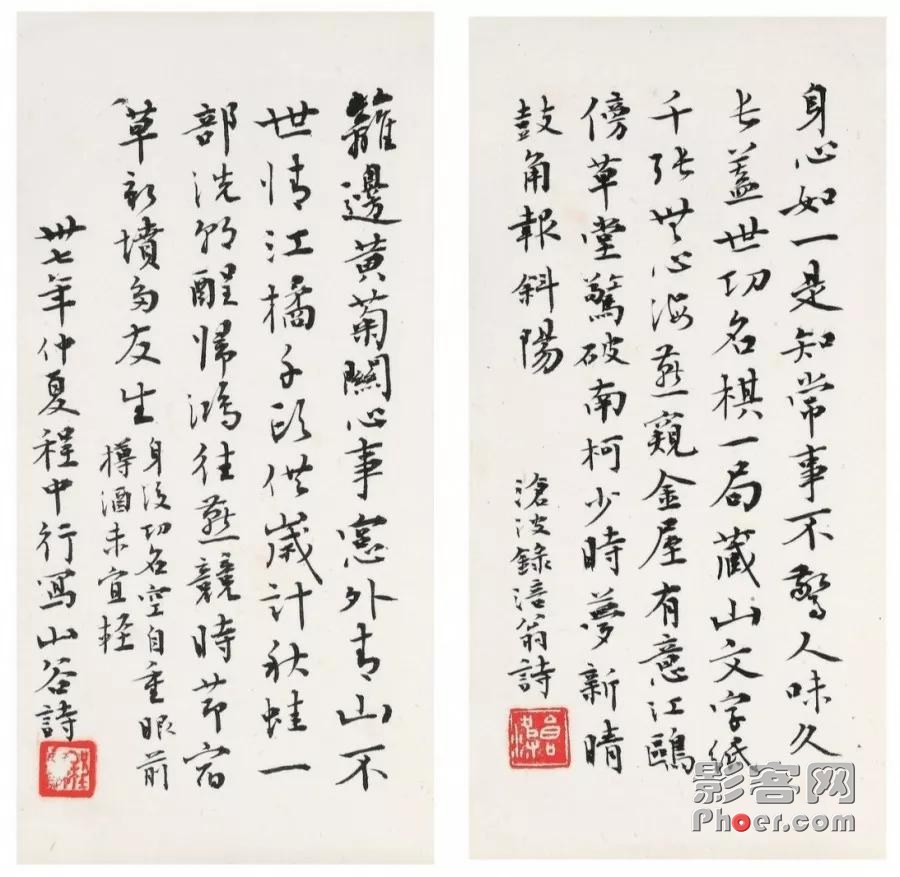 身心如一是知常事不驚人味久
長蓋世功名棋一局藏山文字紙
千張無心海燕窺金屋有意江鷗
傍草堂驚破南柯少時夢新晴
鼓角報斜陽
滄波錄涪翁詩
籬邊黃菊關心事窓外青山不
世情江橘千頭供歲計秋蛙一
部洗朝醒歸鴻往燕競時節宿
草新墳多友生
身後功名空自重眼前
樽酒未宜輕
卅七年仲夏程中行寫山谷詩
影客网
Phoer.com